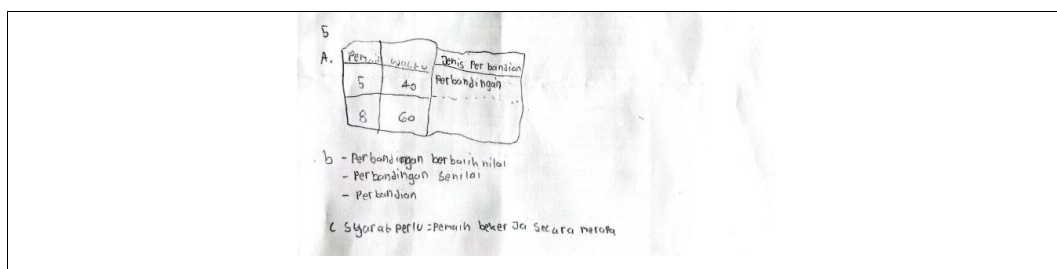 5
A. Pemain Waktu Jenis Perbandian
5 40 Perbandingan
8 60
b - Perbandingan berbalik nilai
- Perbandingan Senilai
- Perbandian
C Syarat Perlu = Pemain bekerja secara merata